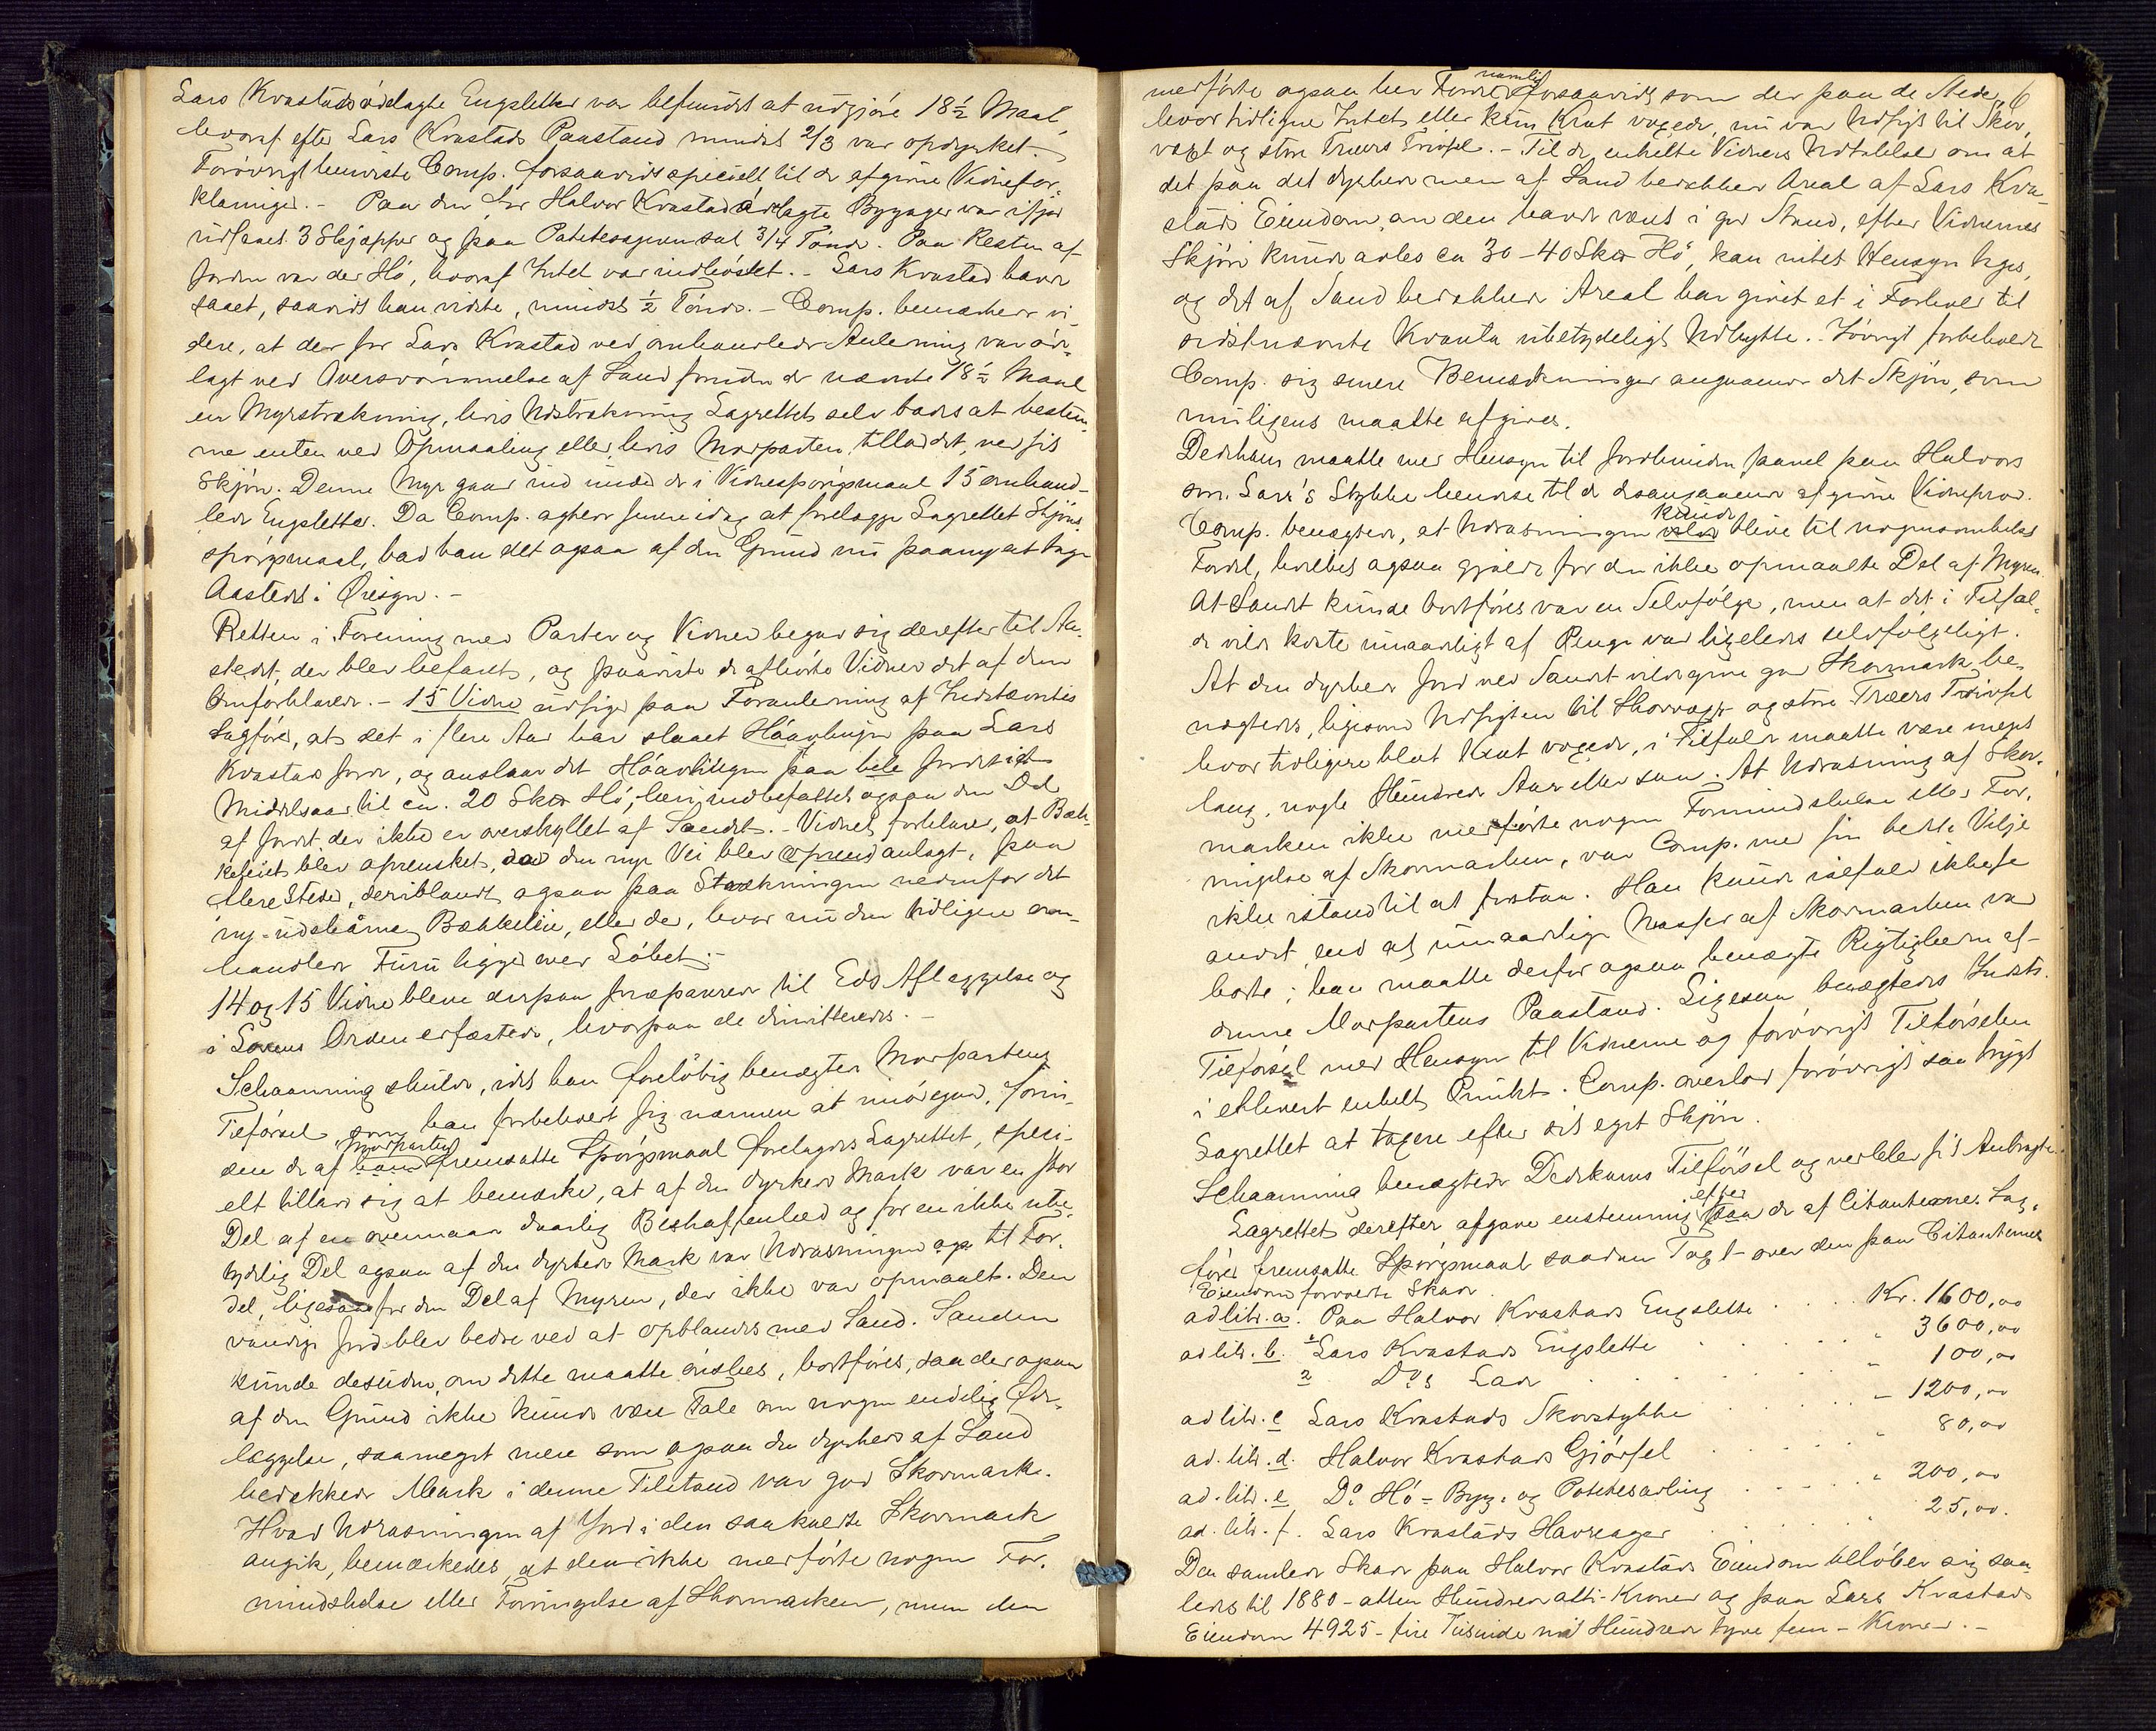 Lars Kvastads ødelagte Engsletter var befundet at udgjøre 18 1/2 Maal,
hvoraf efter Lars Kvastads Paastand mindst 2/3 var opdyrket.
Forøvrigt henviste Comp. forsaavidt specielt til de afgivne Vidnefor-
klaringer. - Paa den for Halvor Kvastad ødelagte Bygager var ifjor
udsaaet 3 Skjæpper og paa Potetesageren sat 3/4 Tønde. Paa Resten af
Jorden var der Hø, hvoraf Intet var indhøstet. - Lars Kvastad havde
saaet, saavidt han vidste, mindst 1/2 Tønde. - Comp. bemærkede vi-
dere, at der for Lars Kvastad ved omhandlede Anledning var øde-
lagt ved Oversvømmelse af Sand foruden de nævnte 18 1/2 Maal
en Myrstrækning, hvis Udstrækning Lagrettet selv bades at bestem-
me enten ved Opmaaling eller, hvis Modparten tillod det, ved sit
Skjøn. Denne Myr gaar ind under de i Vidnespørgsmaal 15 omhand-
lede Engsletter. Da Comp. agtede senere idag at forelægge Lagrettet Skjøns-
spørgsmaal, bad han det ogsaa af den Grund nu paany at tage
Aastedet i Øiesyn. -
Retten i Forening med Parter og Vidner begav sig derefter til Aa-
stedet, der blev befaret, og paaviste de afhørte Vidner det af dem
Omforklarede. - 15 Vidne udsiger paa Foranledning af Indstævntes
Sagfører, at det i flere Aar har slaaet Høavlingen paa Lars
Kvastads Jorde, og anslaar det Høavlingen paa hele Jordet i et
Middelsaar til ca. 20 Sk℔ Hø, heri indbefattet ogsaa den Del
af Jordet, der ikke er overskyllet af Sandet. - Vidnet forklarer, at Bæk-
keleiet blev oprensket, da den nye Vei blev anlagt, paa
flere Steder, deriblandt ogsaa paa Strækningen nedenfor det
ny-udskårne Bækkeleie, eller der, hvor nu den tidligere om-
handlede Furu ligger over Løbet. -
14 og 15 Vidne bleve derpaa præparerede til Eds Aflæggelse og
i Lovens Orden edfæstede, hvorpaa de dimitteredes. -
Schaanning skulde, idet han foreløbig benægter Modpartens
Tilførsel, som han forbeholdt sig nærmere at imødegaa, forin-
den de af ham Modparten fremsatte Spørgsmaal forelagdes Lagrettet, speci-
elt tillade sig at bemærke, at af den dyrkede Mark var en stor
Del af en overmaade daarlig Beskaffenhed og for en ikke ube-
tydelig Del ogsaa af den dyrkede Mark var Udrasningen ogs. til For-
del, ligesaa for den Del af Myren, der ikke var opmaalt. Den
vandige Jord blev bedre ved at opblandes med Sand. Sanden
kunde desuden, om dette maatte ønskes, bortføres, saa der ogsaa
af den Grund ikke kunde være Tale om nogen endelig Øde-
læggelse, saameget mere som ogsaa den dyrkede af Sand
bedækkede Mark i denne Tilstand var god Skovmark.
Hvad Udrasningen af Jord i den saakaldte Skovmark
angik, bemærkedes, at den ikke medførte nogen For-
mindskelse eller Forringelse af Skovmarken, men den
medførte ogsaa her Fordel, namlig forsaavidt som der paa de Steder, 6
hvor tidligere Intet eller kun Krat voxede, nu var Udsigt til Skov-
vext og store Træers Trivsel. - Til de enkelte Vidners Udtalelse om at
det paa det dyrkede men af Sand bedækkede Areal af Lars Kva-
stads Eiendom, om den havde været i god Stand, efter Vidnernes
Skjøn kunde avles ca 30-40 Sk℔ Hø, kan intet Hensyn tages,
og det af Sand bedækkede Areal har givet et i Forhold til
sidstnævnte Kvanta ubetydeligt Udbytte. Iøvrigt forbeholdt
Comp. sig senere Bemærkninger angaaende det Skjøn, som
muligens maatte afgives.
Dedekam maatte med Hensyn til Jordbunden saavel paa Halvors
som Lars's Stykke henvise til de desangaaende afgivne Vidneprov.
Comp. benægtede, at Udrasningen vilde kunde blive til nogensomhelst
Fordel, hvilket ogsaa gjaldt for den ikke opmaalte Del af Myren.
At Sandet kunde bortføres var en Selvfølge, men at det i Tilfæl-
de vilde koste umaadeligt af Penge var ligeledes selvfølgeligt.
At den dyrkede Jord ved Sandet vilde give god Skovmark be-
nægtedes, ligesom Udsigten til Skovvext og store Træers Trivsel
hvor tidligere blot Krat voxede, i Tilfælde maatte være meget
lang, nogle Hundrede Aar eller saa. At Udrasning af Skov-
marken ikke medførte nogen Formindskelse eller For-
ringelse af Skovmarken, var Comp. med sin bedste Vilje
ikke istand til at forstaa. Han kunde ialfald ikke se
andet, end at umaadelige Masser af Skovmarken var
borte; han maatte derfor ogsaa benægte Rigtigheden af
denne Modpartens Paastand. Ligesaa benægtedes Indst.
Tilførsel med Hensyn til Vidnerne og forøvrigt Tilførselen
i ethvert enkelt Punkt. Comp. overlod forøvrigt saa trygt
Lagrettet at taxere efter sit eget Skjøn.
Schaanning benægtede Dedekams Tilførsel og vedblev sit Anbragte.
Lagrettet derefter afgave enstemmig paa efter de af Citanternes Sag-
fører fremsatte Spørgsmaal saadan Taxt over den paa Citanternes
Eiendom forvoldte Skade.
ad litr. a. Paa Halvor Kvastads Engslette . . . . Kr. 1600,00
ad litr. b. 1 Lars Kvastads Engslette . . . . " 3600,00
2 Do s Lade . . . . " 100,00
ad litr. c Lars Kvastads Skovstykke . . . . - 1200,00
ad. litr. d. Halvor Kvastads Gjødsel . . . . " 80,00
ad. litr. e Do Hø- Byg- og Potetesavling . . . . " 200,00
ad. litr. f. Lars Kvastads Havreager . . . . " 25,00.
Den samlede Skade paa Halvor Kvastads Eiendom beløber sig saa-
ledes til 1880 - atten Hundrede otti - Kroner og paa Lars Kvastads
Eiendom 4925 - fire Tusinde ni Hundrede tyve fem - Kroner. -